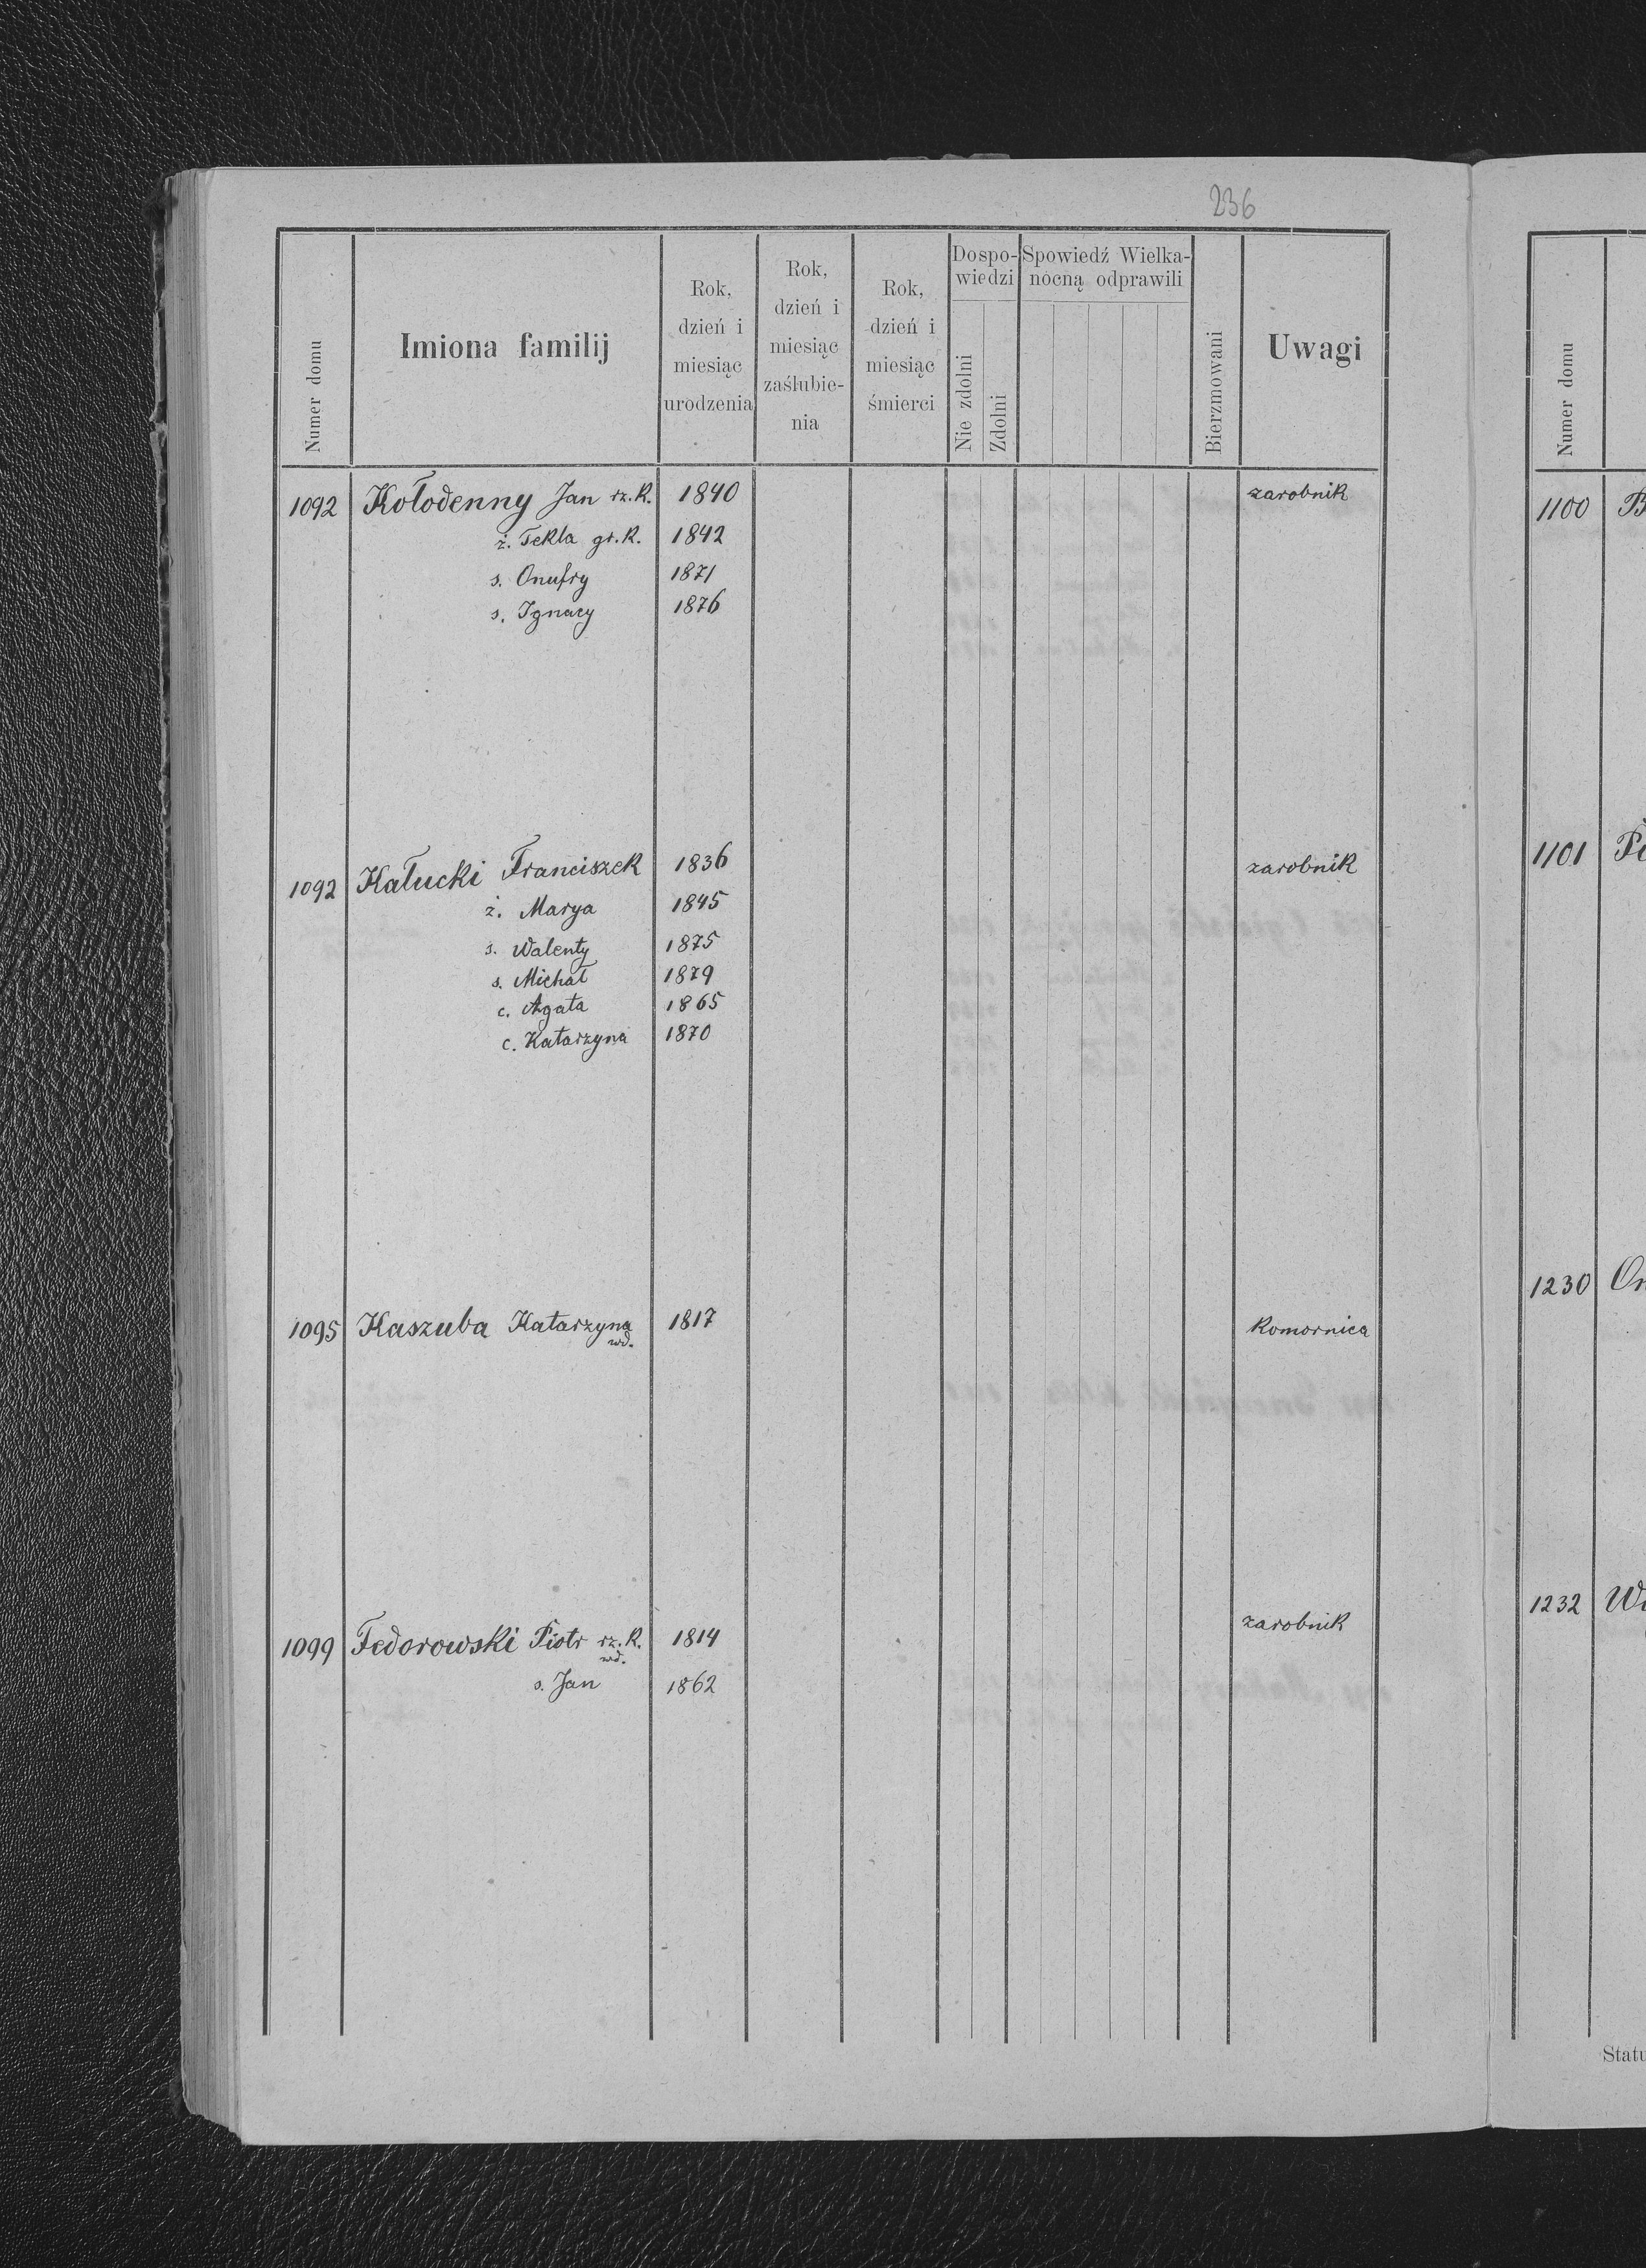 236
Numer domu
Imiona familij
Rok,
dzień i
miesiąc
urodzenia
Rok,
dzień i
miesiąc
zaślubie-
nia
Rok,
dzień i
miesiąc
śmierci
Dospo-
wiedzi
Nie zdolni
Zdolni
Spowiedź Wielka-
nocną odprawili
Bierzmowani
Uwagi
1092 Kołodenny Jan rz. K. 1840 zarobnik
ż. Tekla gr. K. 1842
s. Onufry 1871
s. Ignacy 1876
1092 Kałucki Franciszek 1836 zarobnik
ż. Marya 1845
s. Walenty 1875
s. Michał 1879
c. Agata 1865
c. Katarzyna 1870
1095 Kaszuba Katarzyna 1817 Komornica
wd.
1099 Fedorowski Piotr rz. K. 1814 zarobnik
wd.
s. Jan 1862
Numer domu
1100 B
1101
1230 On
1232
Statu